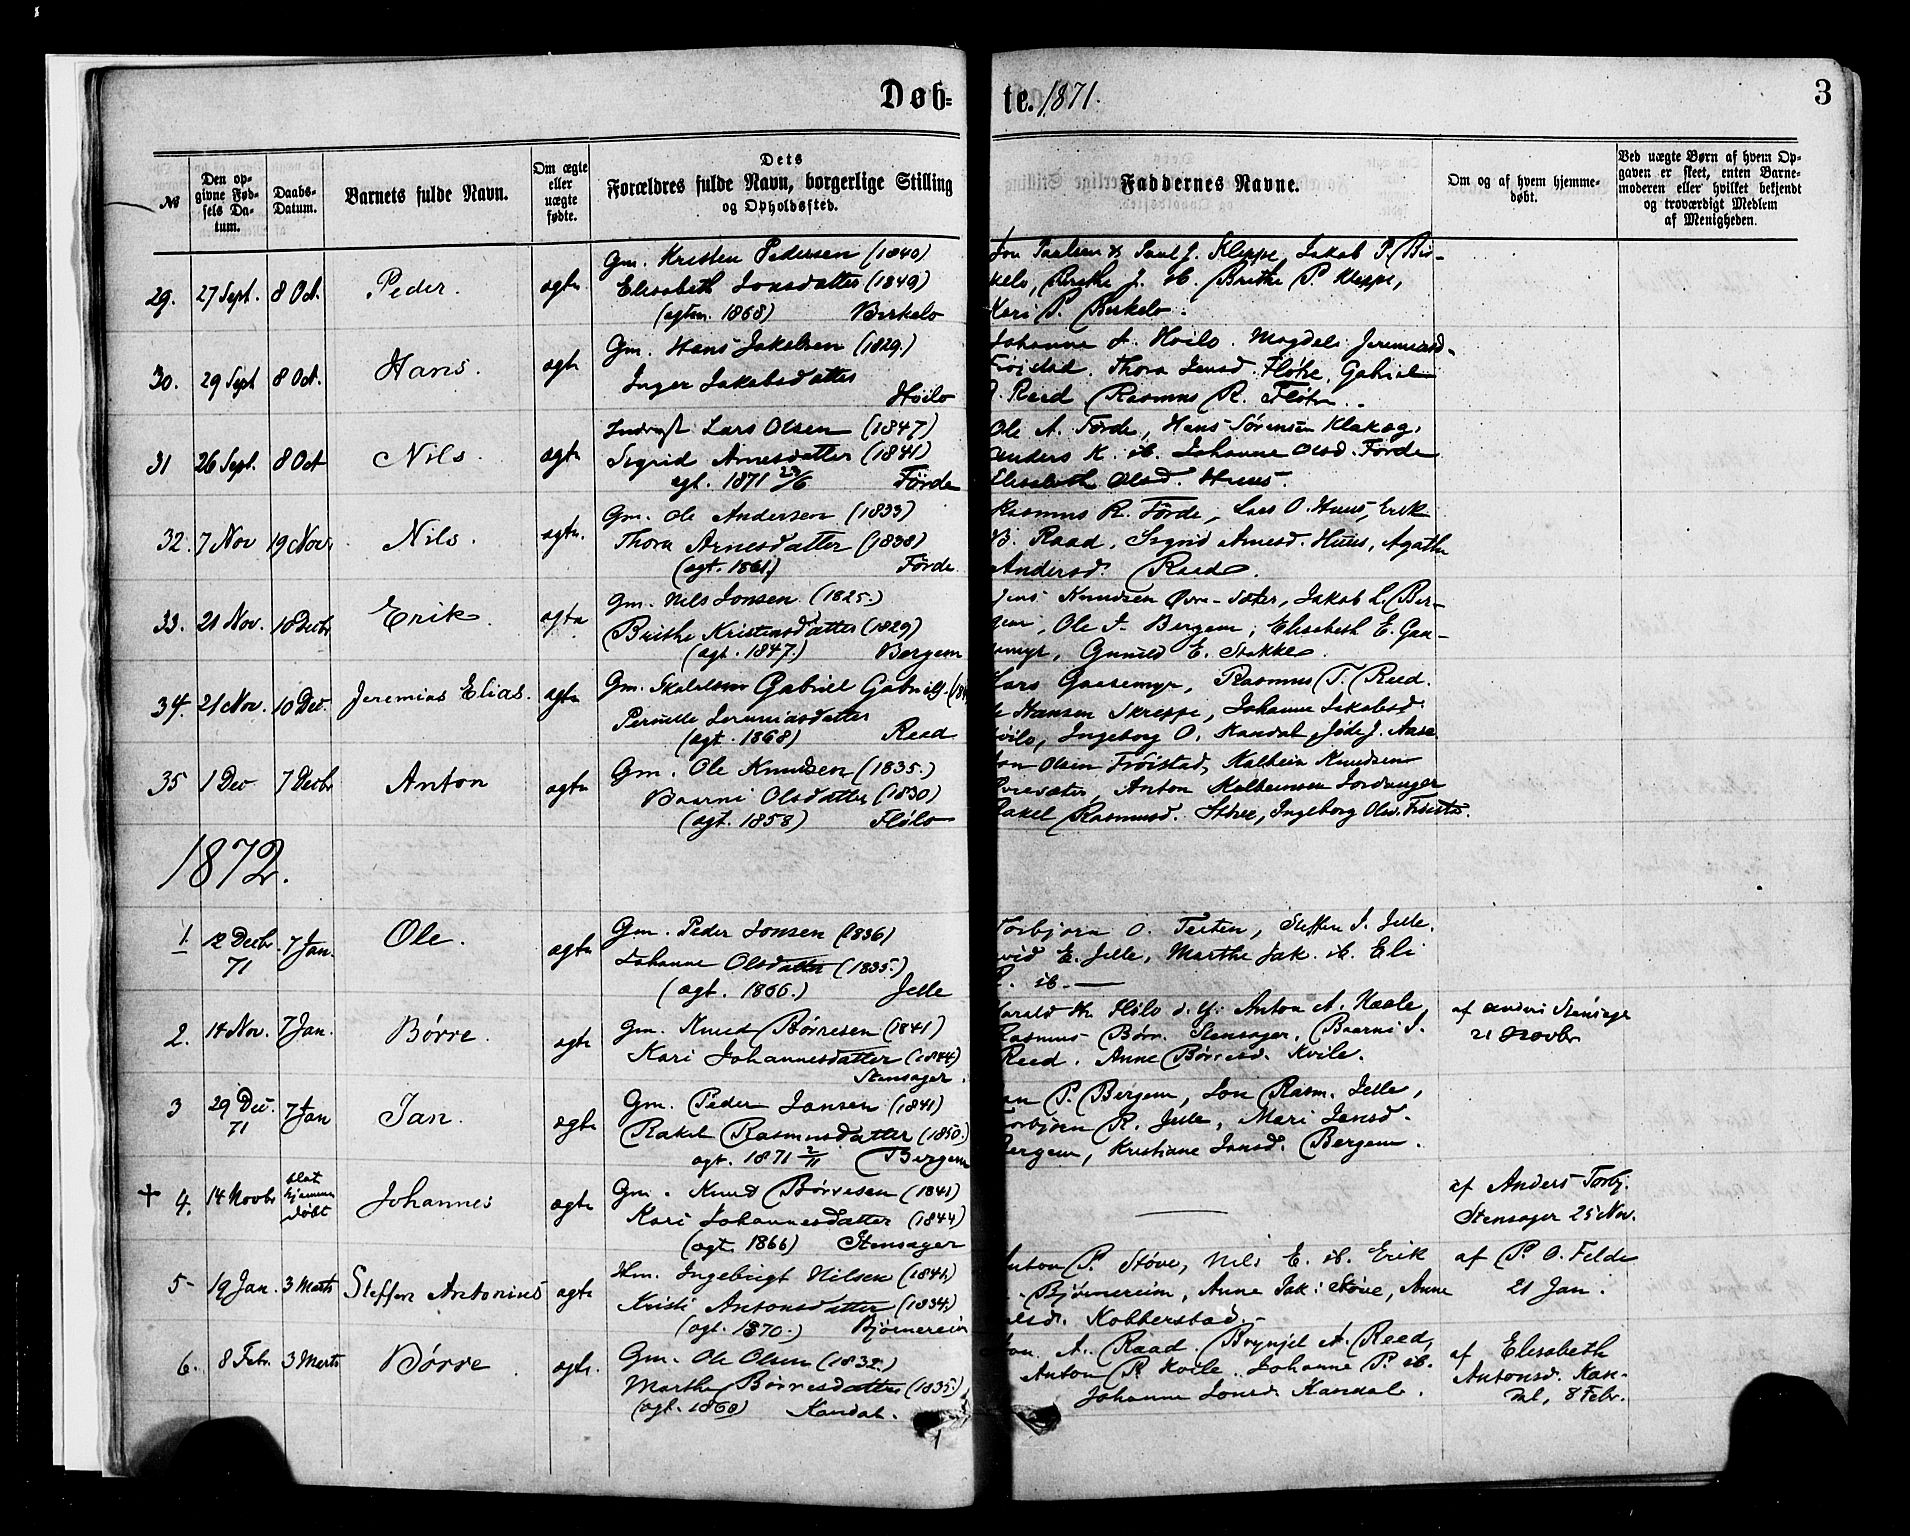 Døb=
te. 1871.
3
№
Den op-
givne Fød-
sels Da-
tum.
Daabs-
Datum.
Barnets fulde Navn.
Om ægte
eller
uægte
fødte.
Dets
Forældres fulde Navn, borgerlige Stilling
og Opholdssted.
Faddernes Navne.
Om og af hvem hjemme-
døbt.
Ved uægte Børn af hvem Op-
gaven er skeet, enten Barne-
moderen eller hvilket bekjendt
og troværdigt Medlem
af Menigheden.
29. 27 Sept. 8 Oct. Peder. ægte
Gm. Kristen Pedersen (1840)
Elisabeth Jonsdatter (1849)
(1868) Birkelo
Jon Paulsen & Paul J. Kleppe, Jakob P. Bir-
kelo, Berthe J. ib. Brithe P. Kleppe,
Kari P. Birkelo.
30. 29 Sept 8 Oct. Hans. ægte
Gm. Hans Jakobsen (1829.)
Inger Jakobsdatter
Høilo
Johanne A. Høilo. Magdele Jeremiasd.
Frøistad. Thora Jensd. Fløtre, Gabriel
Reed Rasmus R. Fløtre.
31 26 Sept. 8 Oct Nils. ægte
Inderst Lars Olsen (1847)
Sigrid Arnesdatter (1841)
egt. 1871 Førde
Ole A. Førde, Hans Sørensen Klakeg,
Anders K. ib. Johanne Olsd. Førde
Elisabeth Olsd. Huus.
32. 7 Nov 19 Nov. Nils. ægte.
Gm. Ole Andersen (1833)
Thora Arnesdatter (1838)
(ægt. 1861.) Førde
Rasmus R. Førde, Lars O. Huus, Erik
B. Raad, Sigrid Arnesd. Huus, Agathe
Andersd. Reed.
33. 21 Nov. 10 Decbr Erik. ægte
Gm. Nils Jonsen. (1825.)
Brithe Kristensdatter (1829)
(ægt. 1847.) Bergem
Jens Knudsen Øvre-Sæter, Jakob L. Ber-
gem, Ole J. Bergem, Elisabeth E. Gaa-
semyr, Gunild E. Stokke.
34. 21 Nov. 10 Dec. Jeremias Elias. ægte
Gm. Gabriel Gabriels.
Pernille Jeremiasdatter
(ægt. 1868) Reed
Lars Gaasemyr, Rasmus T. Reed.
Hansen Skreppe, Johanne Jakobsd.
Høilo, Ingeborg O. Kandal,
35 1 Dec 7 Decbr Anton ægte
Gm. Ole Knudsen (1835.)
Baarni Olsdatter (1830)
(ægt. 1858) Fløtre
Olsen Frøistad, Knudsen
Øvresæter, Anton
Rakel Rasmusd. Støve, Ingeborg Olsd. Frøistad.
1872.
1. 12 Decbr 71 7 Jan. Ole. ægte
Gm. Peder Jonsen (1836)
Johanne Olsdatter (1835.)
(ægt. 1866.) Jelle
Torbjørn O. Teiten, Steffen J. Jelle.
E. Jelle, Marthe Jak. ib. Eli
R. ib. —
2. 14 Nov. 7 Jan. Børre. ægte
Gm. Knud Børresen (1841)
Kari Johannesdatter (1844)
Stensager.
Anton A.
Rasmus Børr. Stensager, Baarni J.
Reed. Anne Børresd. Kvile.
af Anders Stensager
21 Novbr
3 29 Dec. 71 7 Jan Jan. ægte
Gm. Peder Jansen (1841)
Rakel Rasmusdatter (1850.)
ægt. 1871 2/11 Bergem
Jan P. Bergem, Jon Rasm. Jelle,
Torbjørn R. Jelle, Mari Jansd.
Bergem, Kristiane Jansd. Bergem.
+ 4. 14 Novbr blot hjemme døbt Johannes ægte
Gm. Knud Børresen (1841)
Kari Johannesdatter (1844)
(ægt. 1866) Stensager
—
af Anders Torbj.
Stensager 25 Nov.
5 19 Jan. 3 Marts Steffen Antonius ægte
Hm. Ingebrigt Nilsen (1841)
Kristi Antonsdatter (1834)
(ægt. 1870.) Bjørnereim
Anton P. Støve, Nils E. ib. Erik
Bjørnereim, Anne Jak: Støve, Anne
Kobberstad.
af P. O. Felde
21 Jan.
6. 8 Febr. 3 Marts Børre ægte.
Gm. Ole Olsen (1832.)
Marthe Børresdatter (1835.)
(ægt. 1860) Kandal.
Jon A. Raad. Brynjel A. Reed,
Anton R. Kvile. Johanne P. ib.
Johanne Jonsd. Kandal.
af Elisabeth
Antonsd. Kan-
dal, 8 Febr.